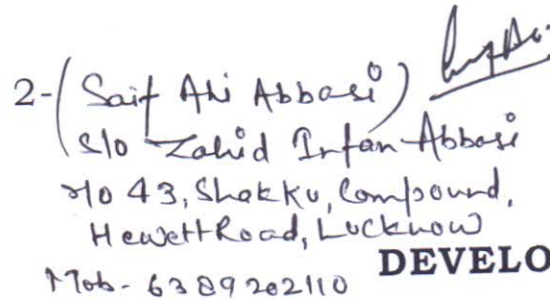 2-(Saif Ali Abbasi)
S/o Zahid Irfan Abbasi
r/o 43, Shakku, Compound,
Hewett Road, Lucknow
Mob - 6389202110 DEVELO